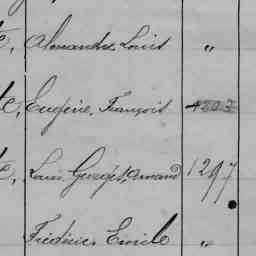 e, Alexandre Louis "
te, Eugène, François 4803
te, Louis Georges, Amand 1297
Frédéric Emile "